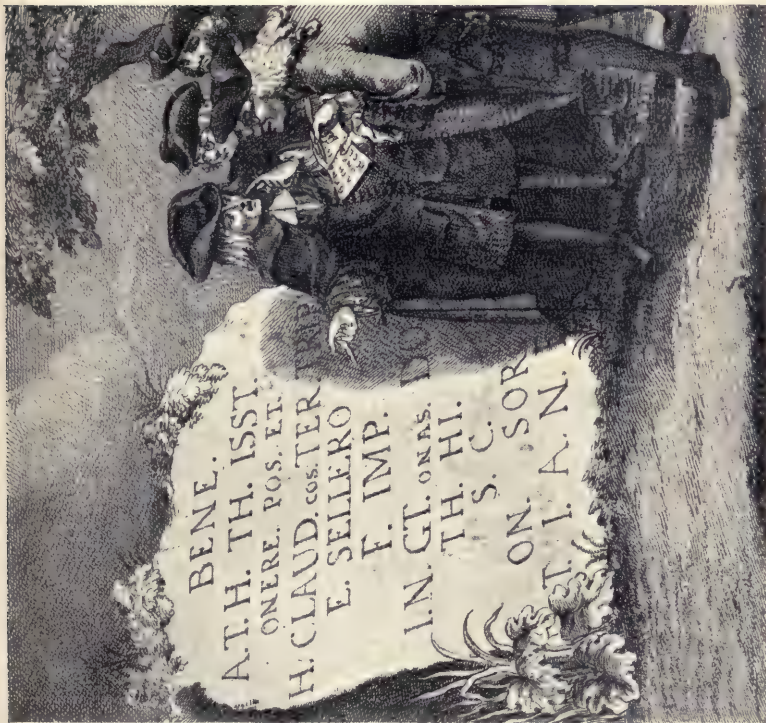 BENE.
A.T.H. TH. ISST.
ONERE. POS. ET.
H. CLAUD. COS. TER. TRIP
E. SELLERO
F. IMP.
I.N. GT. ONAS. DO
TH. HI.
S. C.
ON. SOR
T. I. A. N.